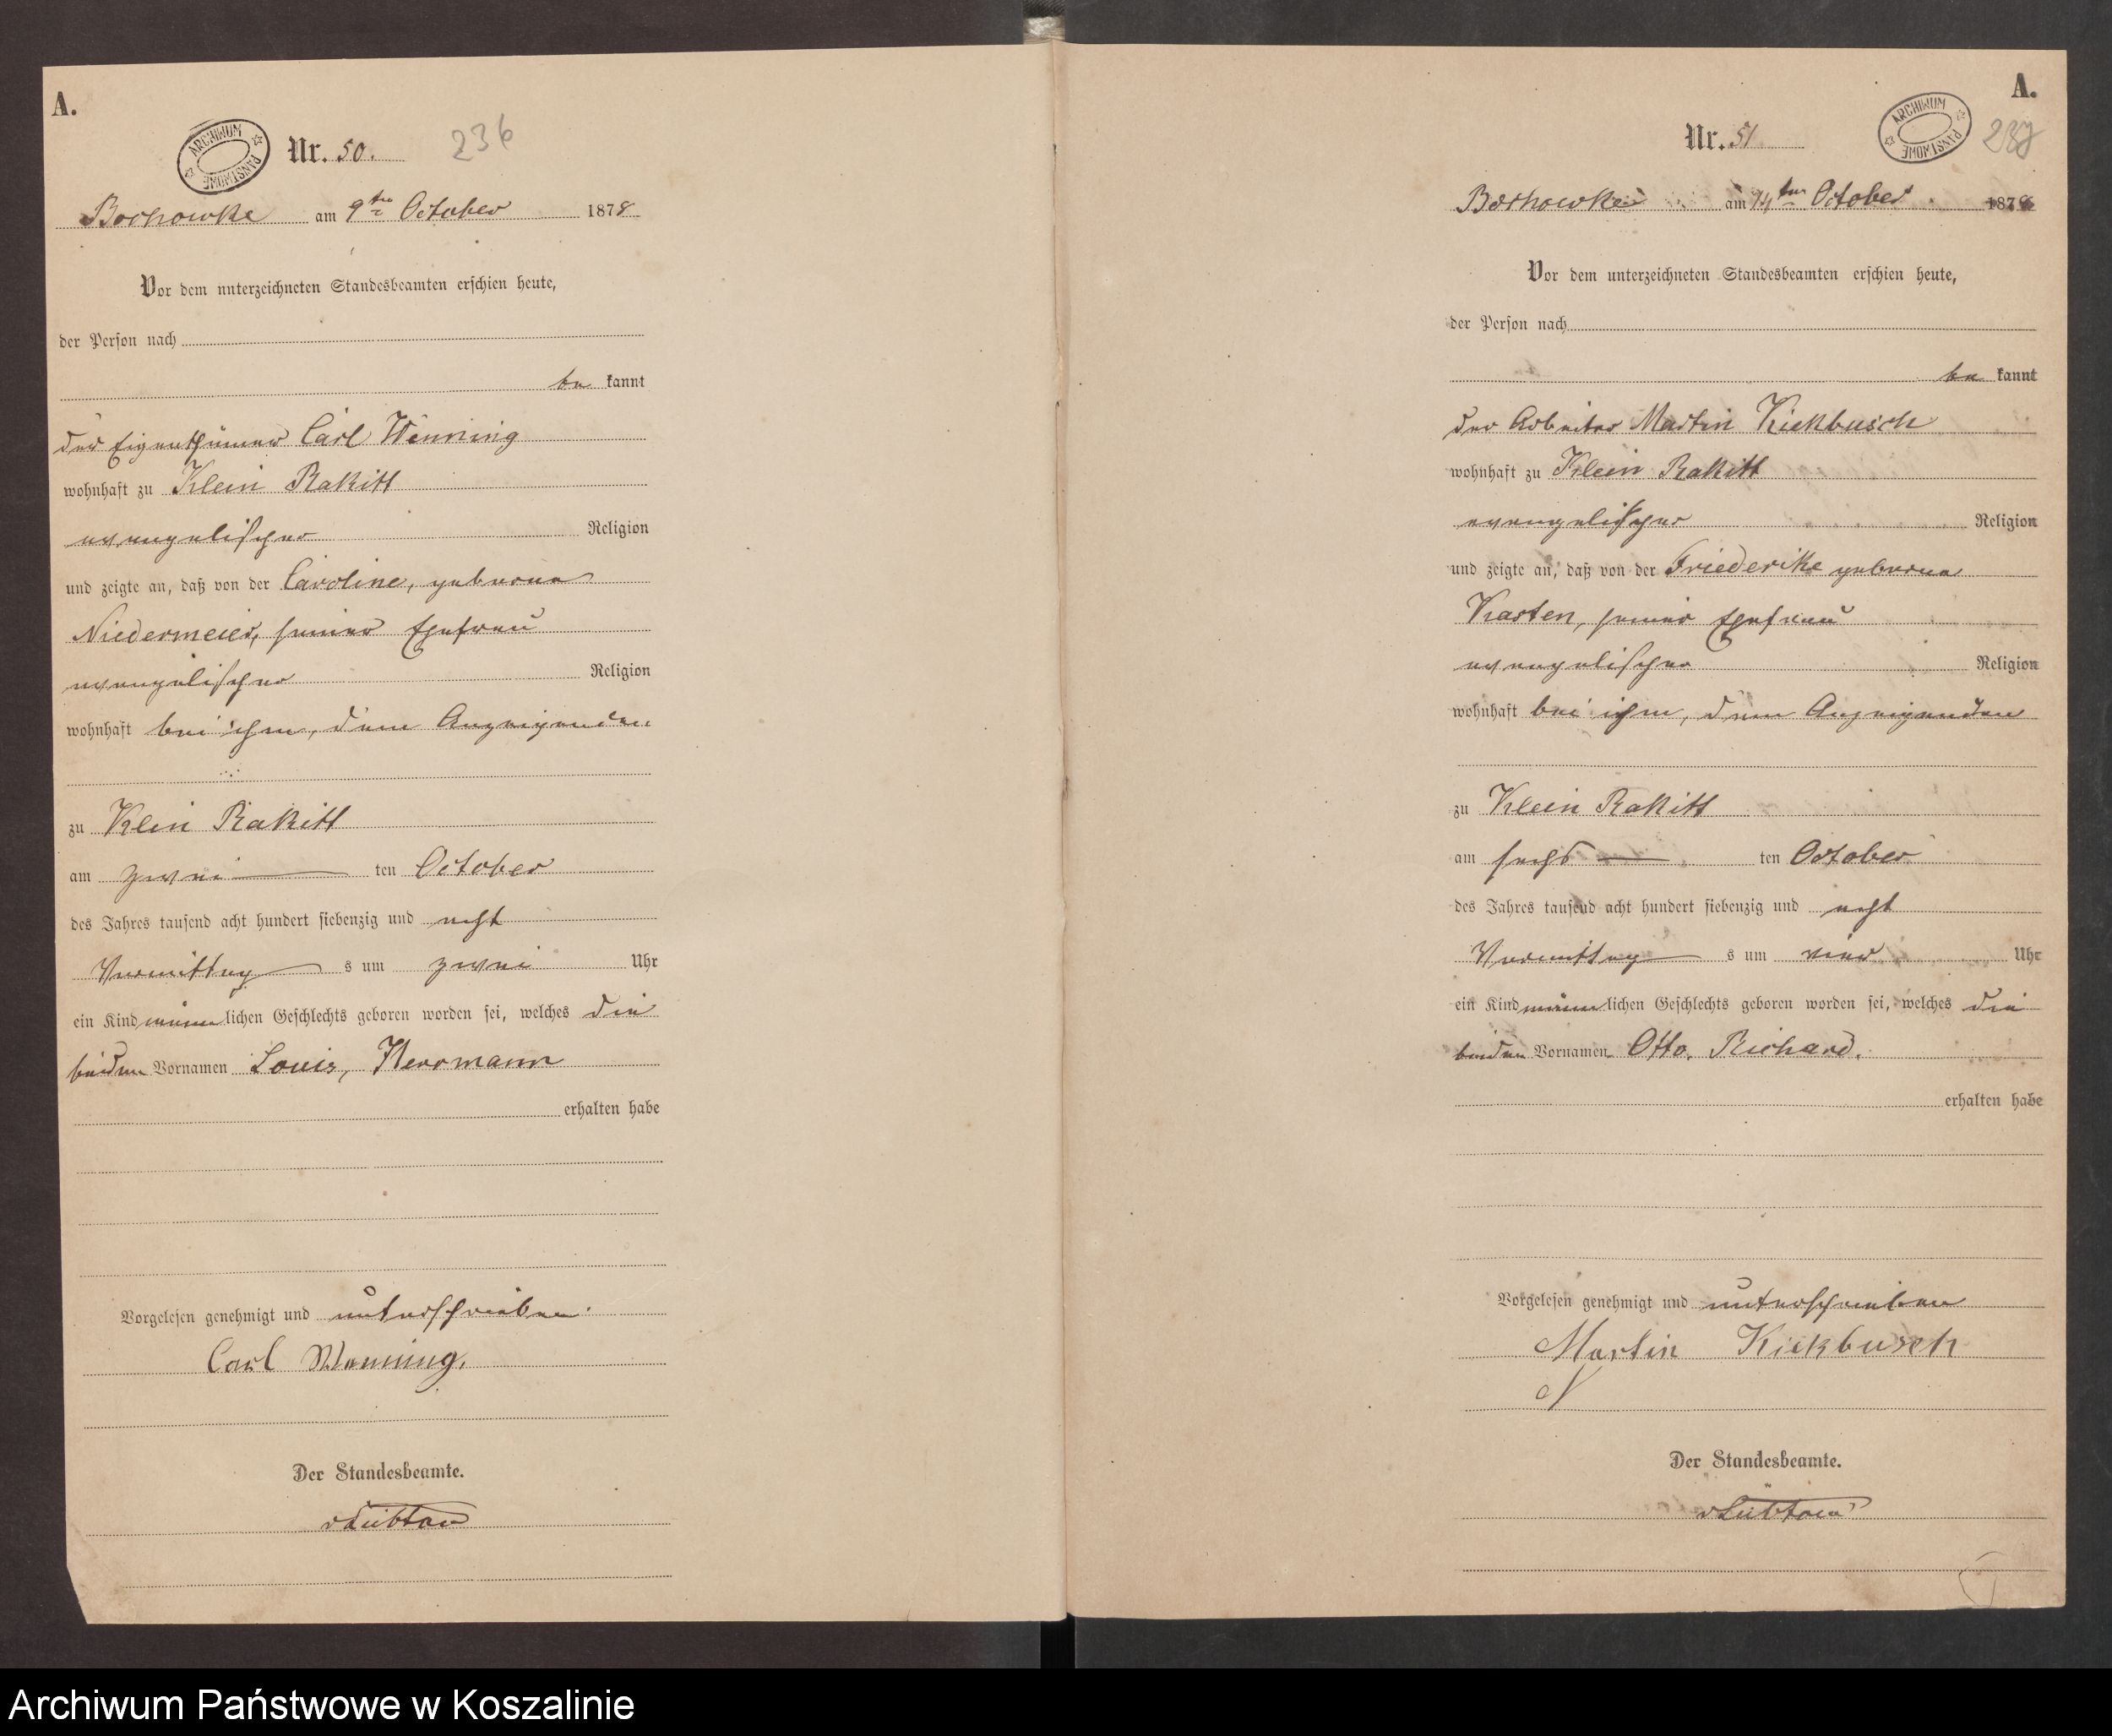 A.
ARCHIWUM PAŃSTWOWE
Nr. 50. 236
Borkowke am 9ten October 1878
Vor dem unterzeichneten Standesbeamten erschien heute,
der Person nach
be kannt
der Eigenthümer Carl Wenning
wohnhaft zu Klein Rakitt
evangelischer Religion
und zeigte an, daß von der Caroline, geborne
Niedermeier, seiner Ehefrau
evangelischer Religion
wohnhaft bei ihm, dem Anzeigenden
zu Klein Rakitt
am zwei ten October
des Jahres tausend acht hundert siebenzig und acht
Vormittag s um zwei Uhr
ein Kind männ lichen Geschlechts geboren worden sei, welches die
beiden Vornamen Louis, Herrmann
erhalten habe
Vorgelesen genehmigt und unterschrieben.
Carl Wenning.
Der Standesbeamte.
v Lübtow
A.
ARCHIWUM PAŃSTWOWE
Nr. 51 237
Borkowke am 14ten October 1878
Vor dem unterzeichneten Standesbeamten erschien heute,
der Person nach
be kannt
der Arbeiter Martin Kiekbusch
wohnhaft zu Klein Rakitt
evangelischer Religion
und zeigte an, daß von der Friederike geborne
Karten, seiner Ehefrau
evangelischer Religion
wohnhaft bei ihm, dem Anzeigenden
zu Klein Rakitt
am sechs ten October
des Jahres tausend acht hundert siebenzig und acht
Vormittag s um vier Uhr
ein Kind männ lichen Geschlechts geboren worden sei, welches die
beiden Vornamen Otto, Richard,
erhalten habe
Vorgelesen genehmigt und unterschrieben
Martin Kiekbusch
Der Standesbeamte.
v Lübtow
Archiwum Państwowe w Koszalinie